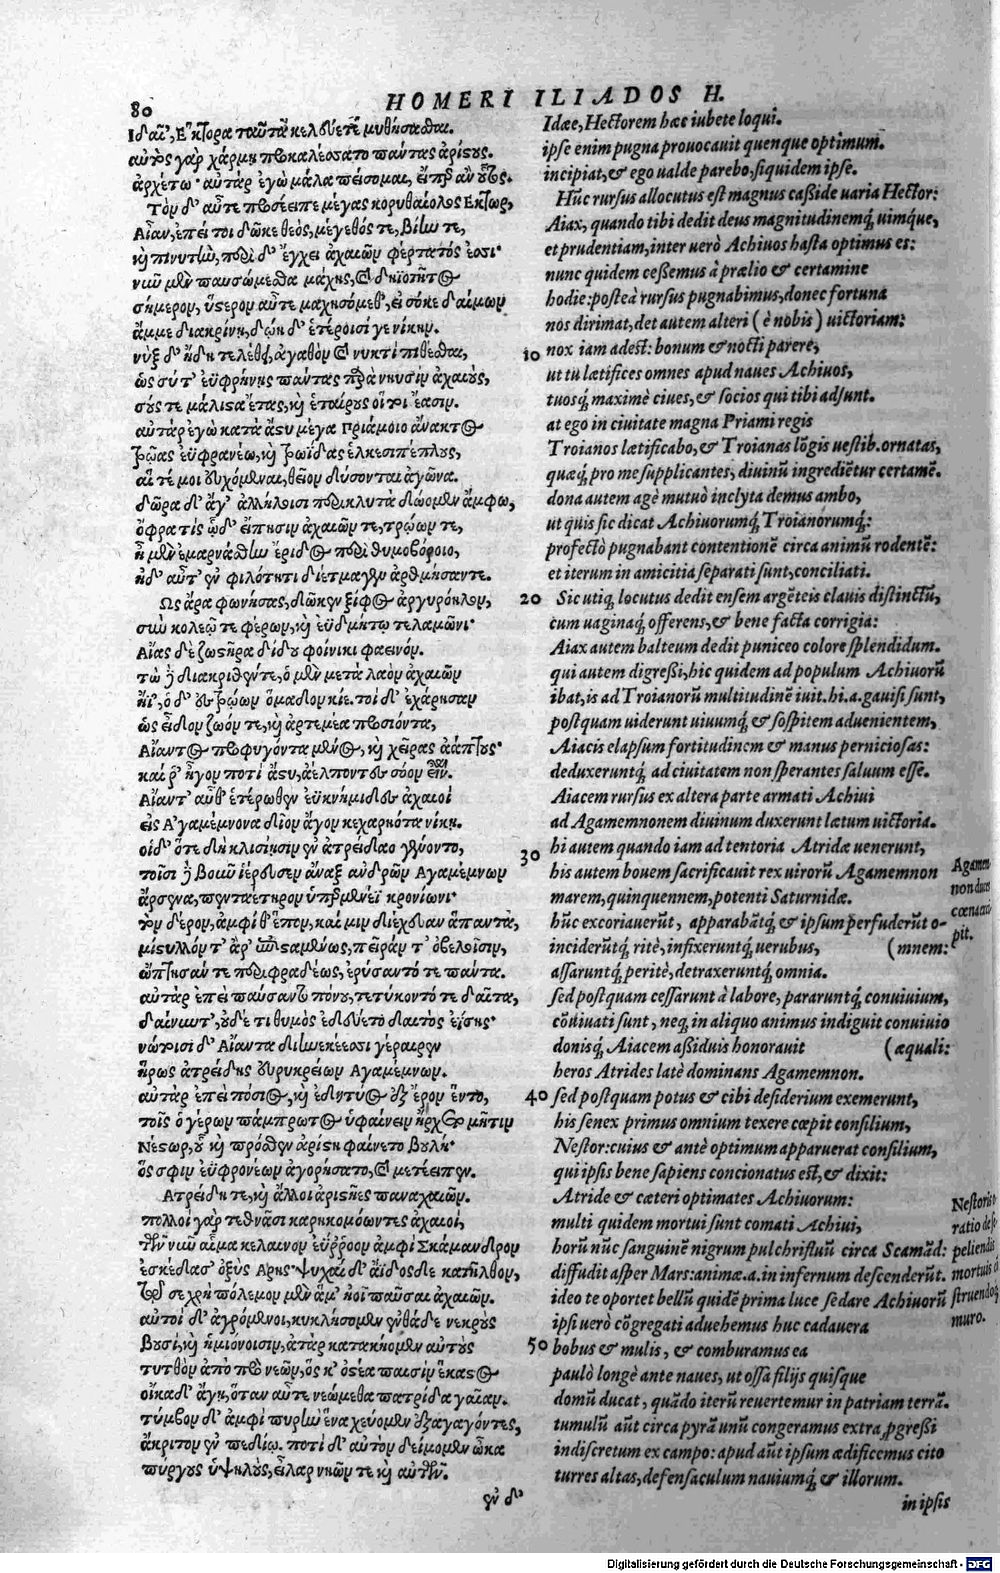 80
HOMERI ILIADOS H.
Ἰδαῖ', Ἕκτορα ταῦτα κελεύετε μυθήσασθαι.
αὐτὸς γὰρ χάρμῃ προκαλέσσατο πάντας ἀρίστους.
ἀρχέτω· αὐτὰρ ἐγὼ μάλα πείσομαι, εἴπερ ἂν οὗτος.
Τὸν δ' αὖτε προσέειπε μέγας κορυθαίολος Ἕκτωρ,
Αἶαν, ἐπεί τοι δῶκε θεὸς, μέγεθός τε, βίην τε,
καὶ πινυτὴν, περὶ δ' ἔγχει ἀχαιῶν φέρτατός ἐσσι·
νῦν μὲν παυσώμεσθα μάχης, καὶ δηϊοτῆτος
σήμερον, ὕστερον αὖτε μαχησόμεθ', εἰσόκε δαίμων
ἄμμε διακρίνῃ, δώῃ δ' ἑτέροισί γε νίκην.
νὺξ δ' ἤδη τελέθει, ἀγαθὸν καὶ νυκτὶ πιθέσθαι,
ὡς σύ τ' ἐϋφρήνῃς πάντας παρὰ νηυσὶν ἀχαιοὺς,
σούς τε μάλιστα ἔτας, καὶ ἑταίρους οἵ τοι ἔασιν.
αὐτὰρ ἐγὼ κατὰ ἄστυ μέγα Πριάμοιο ἄνακτος
τρῶας ἐϋφρανέω, καὶ τρωΐδας ἑλκεσιπέπλους,
αἵ τέ μοι εὐχόμεναι, θεῖον δύσονται ἀγῶνα.
δῶρα δ' ἄγ' ἀλλήλοισι περικλυτὰ δώομεν ἄμφω,
ὄφρα τὶς ὧδ' εἴπῃσιν ἀχαιῶν τε, τρώων τε,
ἦ μὲν ἐμαρνάσθην ἔριδος περὶ θυμοβόροιο,
ἠδ' αὖτ' ἐν φιλότητι διέτμαγεν ἀρθμήσαντε.
Ὣς ἄρα φωνήσας, δῶκεν ξίφος ἀργυρόηλον,
σὺν κολεῷ τε φέρων, καὶ ἐϋδμήτῳ τελαμῶνι·
Αἴας δὲ ζωστῆρα δίδου φοίνικι φαεινόν.
τὼ δὲ διακριθέντε, ὁ μὲν μετὰ λαὸν ἀχαιῶν
ἤϊ', ὁ δ' ἐς τρώων ὅμαδον κίε. τοὶ δ' ἐχάρησαν
ὡς εἶδον ζωόν τε, καὶ ἀρτεμέα προσιόντα,
Αἴαντος προφυγόντα μένος, καὶ χεῖρας ἀάπτους·
καί ῥ' ἦγον ποτὶ ἄστυ, ἀελπτέοντες σόον εἶναι.
Αἴαντ' αὖθ' ἑτέρωθεν ἐϋκνήμιδες ἀχαιοὶ
εἰς Ἀγαμέμνονα δῖον ἄγον κεχαρηότα νίκῃ.
οἱ δ' ὅτε δὴ κλισίῃσιν ἐν ἀτρείδαο γένοντο,
τοῖσι δὲ βοῦν ἱέρευσεν ἄναξ ἀνδρῶν Ἀγαμέμνων
ἄρσενα, πενταέτηρον ὑπερμενέϊ κρονίωνι·
τὸν δέρον, ἀμφί θ' ἕπον, καί μιν διέχευαν ἅπαντα,
μίστυλλόν τ' ἄρ' ἐπισταμένως, πεῖράν τ' ὀβελοῖσιν,
ὤπτησάν τε περιφραδέως, ἐρύσαντό τε πάντα.
αὐτὰρ ἐπεὶ παύσαντο πόνου, τετύκοντό τε δαῖτα,
δαίνυντ', οὐδέ τι θυμὸς ἐδεύετο δαιτὸς ἐΐσης·
νώτοισι δ' Αἴαντα διηνεκέεσσι γέραιρεν
ἥρως ἀτρείδης εὐρυκρείων Ἀγαμέμνων.
αὐτὰρ ἐπεὶ πόσιος, καὶ ἐδητύος ἐξ ἔρον ἕντο,
τοῖς ὁ γέρων πάμπρωτος ὑφαίνειν ἤρχετο μῆτιν
Νέστωρ, οὗ καὶ πρόσθεν ἀρίστη φαίνετο βουλή·
ὅς σφιν ἐϋφρονέων ἀγορήσατο, καὶ μετέειπεν.
Ἀτρείδη τε, καὶ ἄλλοι ἀριστῆες παναχαιῶν.
πολλοὶ γὰρ τεθνᾶσι καρηκομόωντες ἀχαιοί,
τῶν νῦν αἷμα κελαινὸν ἐΰῤῥοον ἀμφὶ Σκάμανδρον
ἐσκέδασ' ὀξὺς Ἄρης· ψυχαὶ δ' ἄϊδόσδε κατῆλθον,
τῷ σε χρὴ πόλεμον μὲν ἅμ' ἠοῖ παῦσαι ἀχαιῶν.
αὐτοὶ δ' ἀγρόμενοι, κυκλήσομεν ἐνθάδε νεκροὺς
βουσὶ, καὶ ἡμιόνοισιν, ἀτὰρ κατακήομεν αὐτοὺς
τυτθὸν ἀπὸ πρὸ νεῶν, ὥς κ' ὀστέα παισὶν ἕκαστος
οἴκαδ' ἄγῃ, ὅταν αὖτε νεώμεθα πατρίδα γαῖαν.
τύμβον δ' ἀμφὶ πυρὴν ἕνα χεύομεν ἐξαγαγόντες,
ἄκριτον ἐν πεδίῳ. ποτὶ δ' αὐτὸν δείμομεν ὦκα
πύργους ὑψηλοὺς, εἶλαρ νηῶν τε καὶ αὐτῶν.
ἐν δ'
Idæe, Hectorem hæc iubete loqui.
ipse enim pugna prouocauit quenque optimum.
incipiat, & ego ualde parebo, siquidem ipse.
Hũc rursus allocutus est magnus casside uaria Hector:
Aiax, quando tibi dedit deus magnitudinemq́; uimque,
et prudentiam, inter uerò Achiuos hasta optimus es:
nunc quidem cessemus à prælio & certamine
hodie: posteà rursus pugnabimus, donec fortuna
nos dirimat, det autem alteri (è nobis) uictoriam:
10 nox iam adest: bonum & nocti parere,
ut tu lætifices omnes apud naues Achiuos,
tuosq́; maximè ciues, & socios qui tibi adsunt.
at ego in ciuitate magna Priami regis
Troianos lætificabo, & Troianas lõgis uestib. ornatas,
quæq́; pro me supplicantes, diuinũ ingrediẽtur certamẽ.
dona autem agè mutuò inclyta demus ambo,
ut quis sic dicat Achiuorumq́; Troianorumq́;:
profectò pugnabant contentionẽ circa animũ rodentẽ:
et iterum in amicitia separati sunt, conciliati.
20 Sic utiq; locutus dedit ensem argẽteis clauis distinctũ,
cum uaginaq́; offerens, & bene facta corrigia:
Aiax autem balteum dedit puniceo colore splendidum.
qui autem digressi, hic quidem ad populum Achiuorũ
ibat, is ad Troianorũ multitudinẽ iuit. hi. a. gauisi sunt,
postquam uiderunt uiuumq́; & sospitem aduenientem,
Aiacis elapsum fortitudinem & manus perniciosas:
deduxeruntq́; ad ciuitatem non sperantes saluum esse.
Aiacem rursus ex altera parte armati Achiui
ad Agamemnonem diuinum duxerunt lætum uictoria.
30 hi autem quando iam ad tentoria Atridæ uenerunt,
his autem bouem sacrificauit rex uirorũ Agamemnon
marem, quinquennem, potenti Saturnidæ.
hũc excoriauerũt, apparabãtq́; & ipsum perfuderũt o-
inciderũtq́; ritè, infixeruntq́; uerubus, (mnem:
assaruntq́; peritè, detraxeruntq́; omnia.
sed postquam cessarunt à labore, pararuntq́; conuiuium,
cõuiuati sunt, neq; in aliquo animus indiguit conuiuio
donisq́; Aiacem assiduis honorauit (æquali:
heros Atrides latè dominans Agamemnon.
40 sed postquam potus & cibi desiderium exemerunt,
his senex primus omnium texere cœpit consilium,
Nestor: cuius & antè optimum apparuerat consilium,
qui ipsis bene sapiens concionatus est, & dixit:
Atride & cæteri optimates Achiuorum:
multi quidem mortui sunt comati Achiui,
horũ nũc sanguinẽ nigrum pulchrifluũ circa Scamãd:
diffudit asper Mars: animæ. a. in infernum descenderũt.
ideo te oportet bellũ quidẽ prima luce sedare Achiuorũ
ipsi uerò cõgregati aduehemus huc cadauera
50 bobus & mulis, & comburamus ea
paulò longè ante naues, ut ossa filijs quisque
domũ ducat, quãdo iterũ reuertemur in patriam terrã.
tumulũ aũt circa pyrã unũ congeramus extra ꝓgressi
indiscretum ex campo: apud aũt ipsum ædificemus cito
turres altas, defensaculum nauiumq́; & illorum.
in ipsis
Agamem
non duces
cœna exci
pit.
Nestoris
ratio de se
peliendis
mortuis &
struendoq́;
muro.
Digitalisierung gefördert durch die Deutsche Forschungsgemeinschaft - DFG